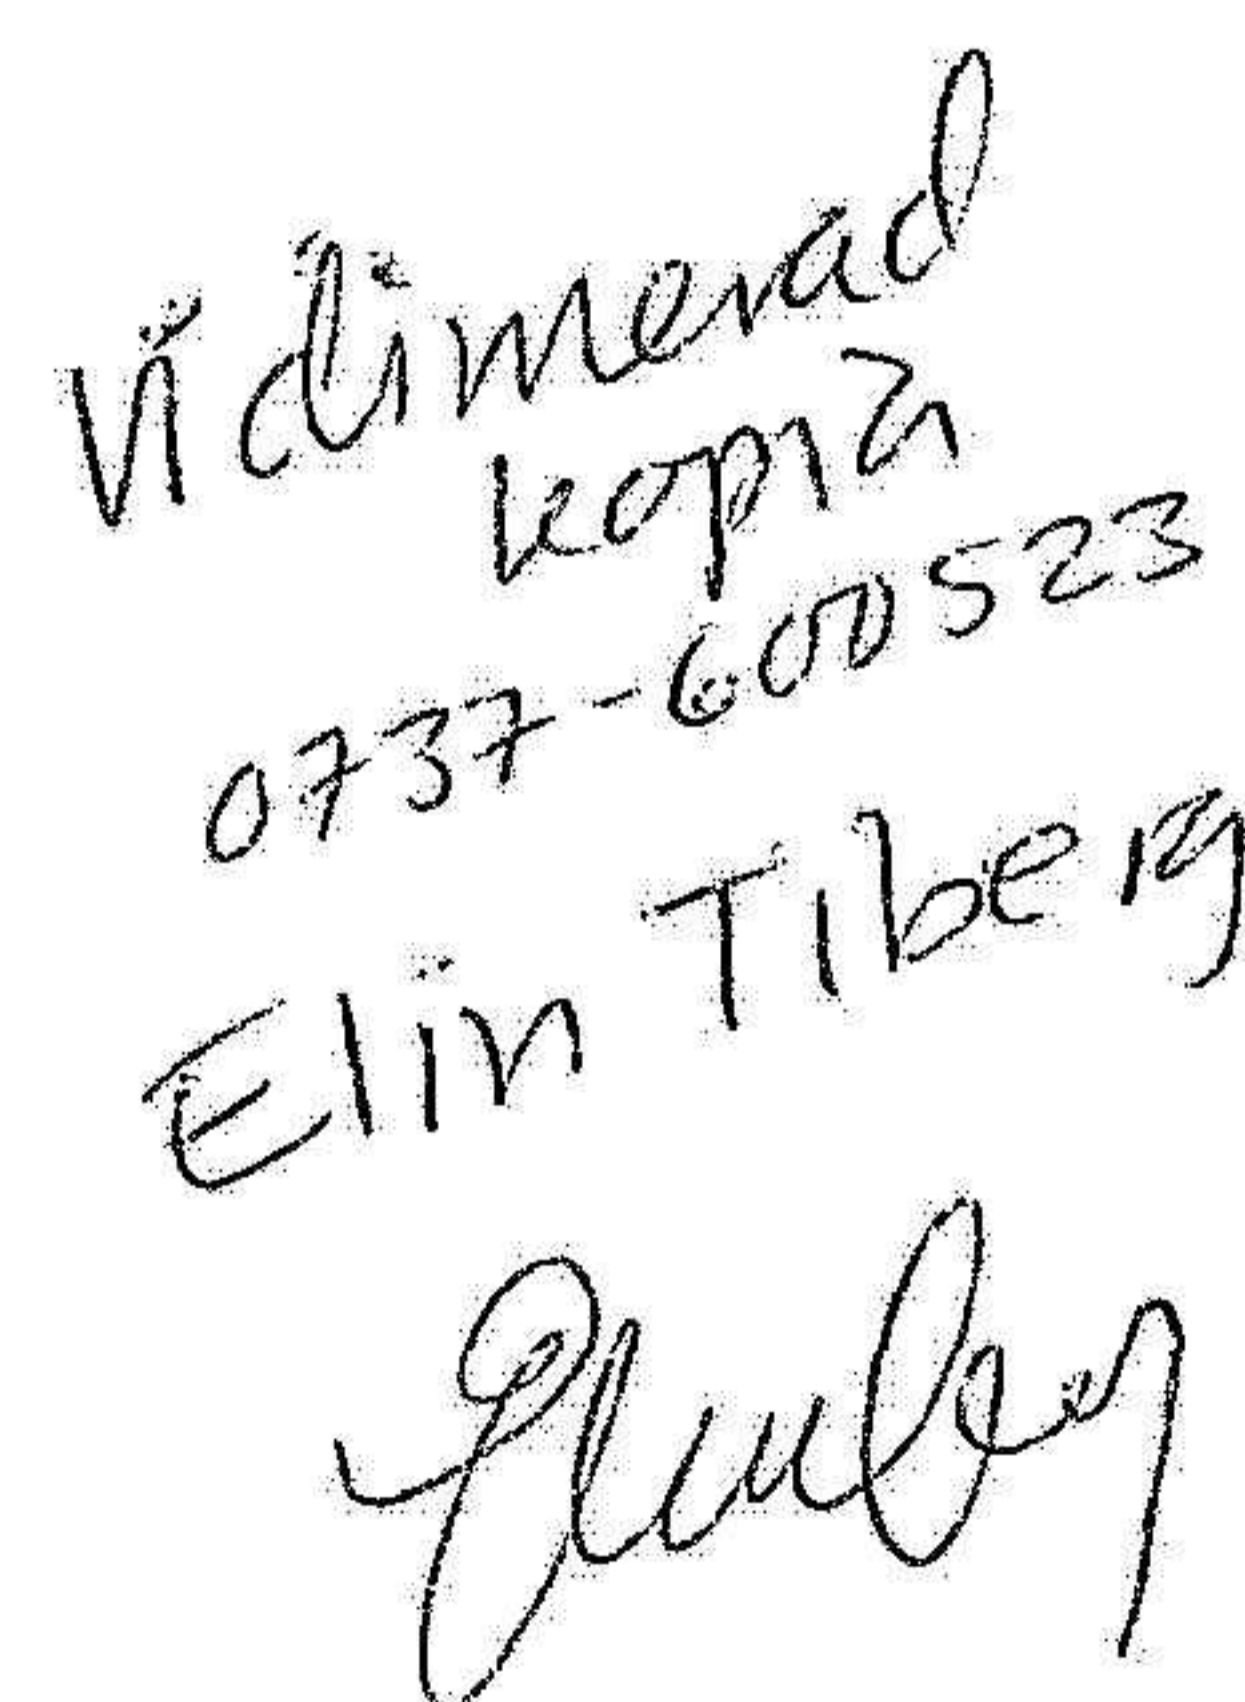 Vidimerad
kopia
0737-600523
Elin Tiberg